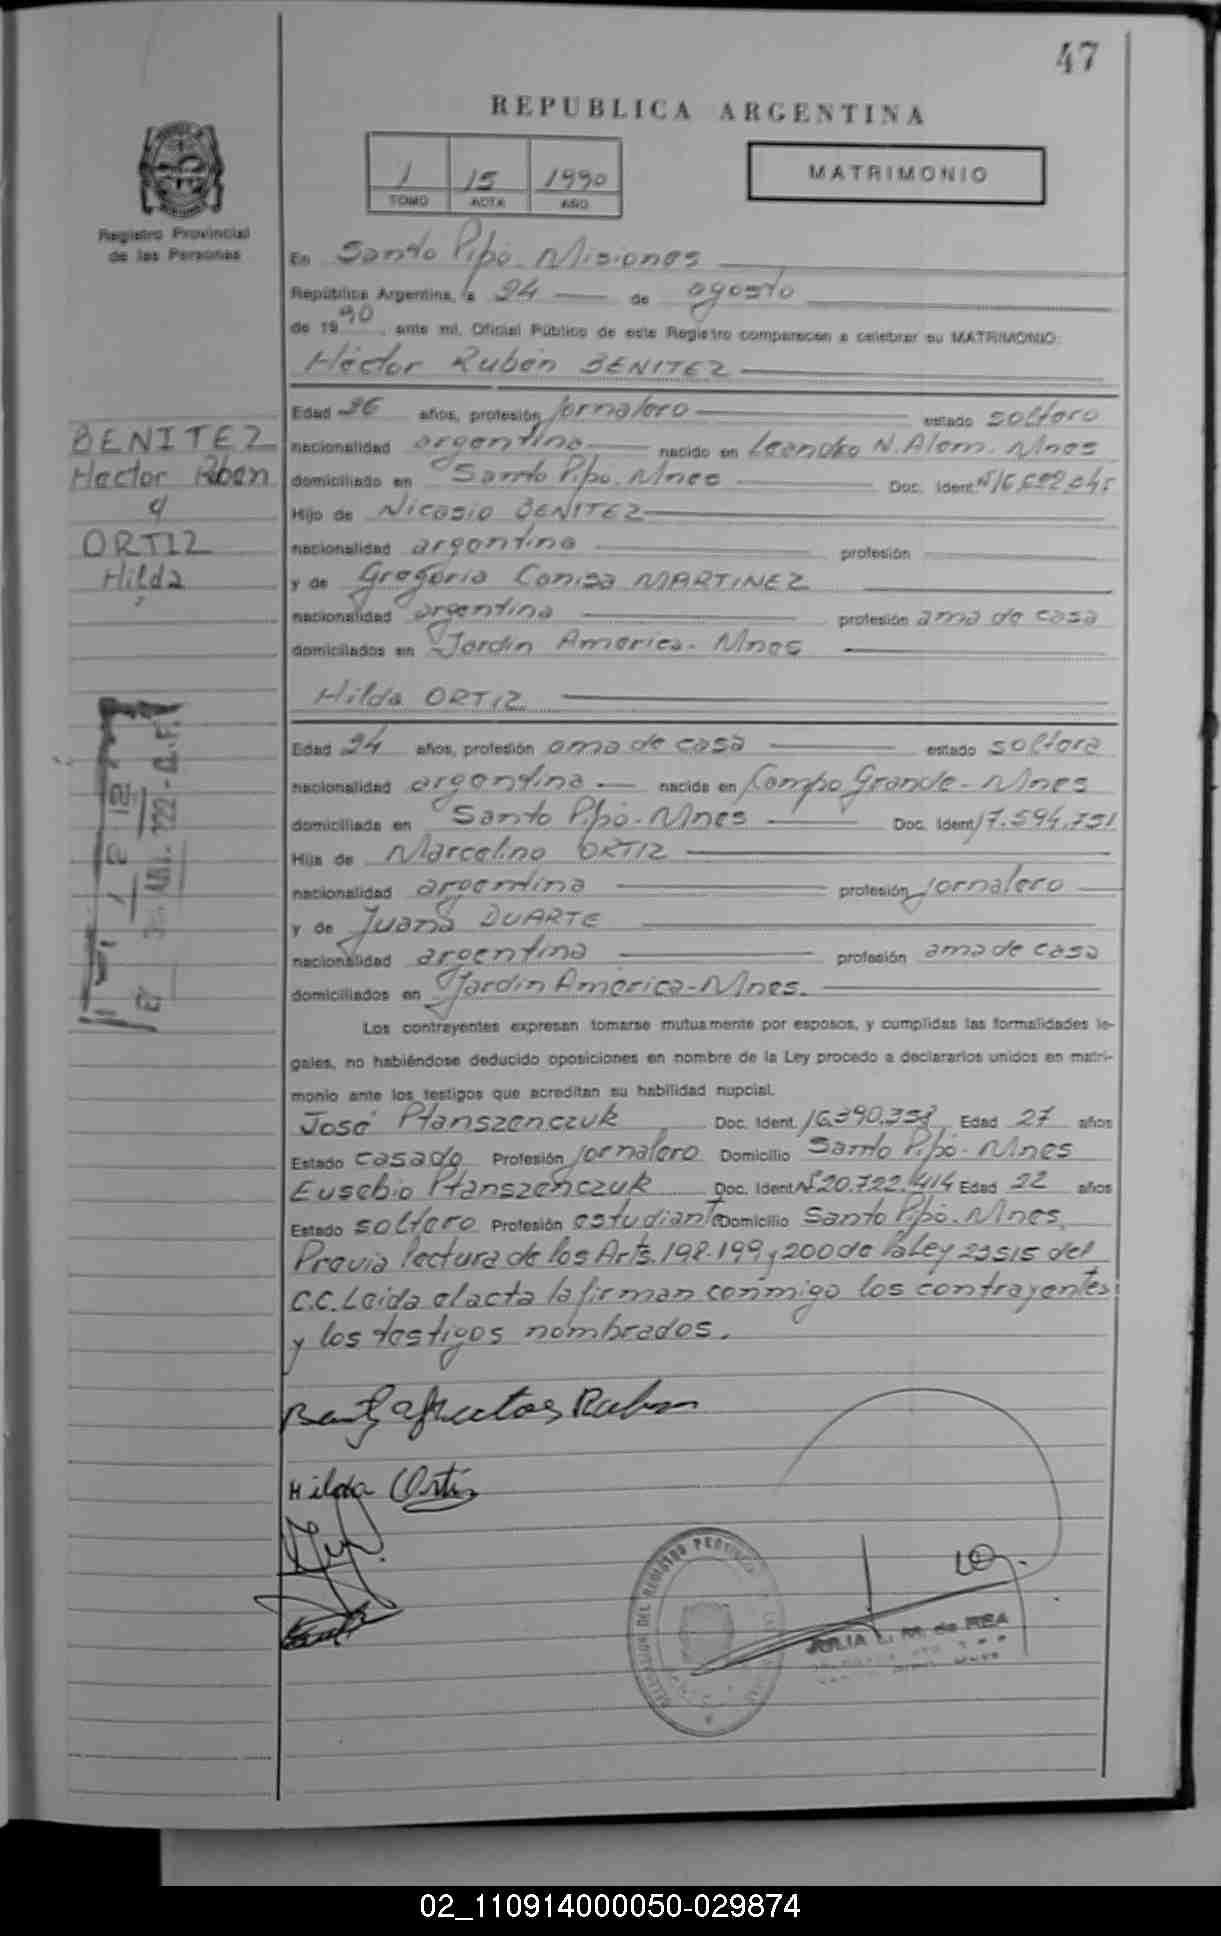 47
REPUBLICA ARGENTINA
1 15 1990
TOMO ACTA AÑO
MATRIMONIO
Registro Provincial
de las Personas
En Santo Pipó - Misiones
República Argentina, a 24 de agosto
de 1990, ante mí, Oficial Público de este Registro comparecen a celebrar su MATRIMONIO:
Héctor Rubén BENITEZ
Edad 26 años, profesión jornalero estado soltero
nacionalidad argentina nacido en Leandro N. Alem. Mnes
domiciliado en Santo Pipó. Mnes Doc. Ident.
Hijo de Nicasio BENITEZ
nacionalidad argentina profesión
y de Gregoria MARTINEZ
nacionalidad argentina profesión ama de casa
domiciliados en Jardín América - Mnes
BENITEZ
Hector Rben
y
ORTIZ
Hilda
Hilda ORTIZ
Edad 24 años, profesión ama de casa estado soltera
nacionalidad argentina nacida en Campo Grande - Mnes
domiciliada en Santo Pipó - Mnes Doc. Ident. 17.594.751
Hija de Marcelino ORTIZ
nacionalidad argentina profesión jornalero
y de Juana DUARTE
nacionalidad argentina profesión ama de casa
domiciliados en Jardín América - Mnes.
Los contrayentes expresan tomarse mutuamente por esposos, y cumplidas las formalidades le-
gales, no habiéndose deducido oposiciones en nombre de la Ley procedo a declararlos unidos en matri-
monio ante los testigos que acreditan su habilidad nupcial.
José Ptanszenczuk Doc. Ident. 16.390.353 Edad 27 años
Estado casado Profesión jornalero Domicilio Santo Pipó - Mnes
Eusebio Ptanszenczuk Doc. Ident. Nº 20.722.414 Edad 22 años
Estado soltero Profesión estudiante Domicilio Santo Pipó - Mnes.
Previa lectura de los Arts. 198-199 y 200 de la Ley 23515 del
C.C. Leida el acta la firman conmigo los contrayentes
y los testigos nombrados.
Hilda Ortiz
JULIA L. M. de REA
02_110914000050-029874